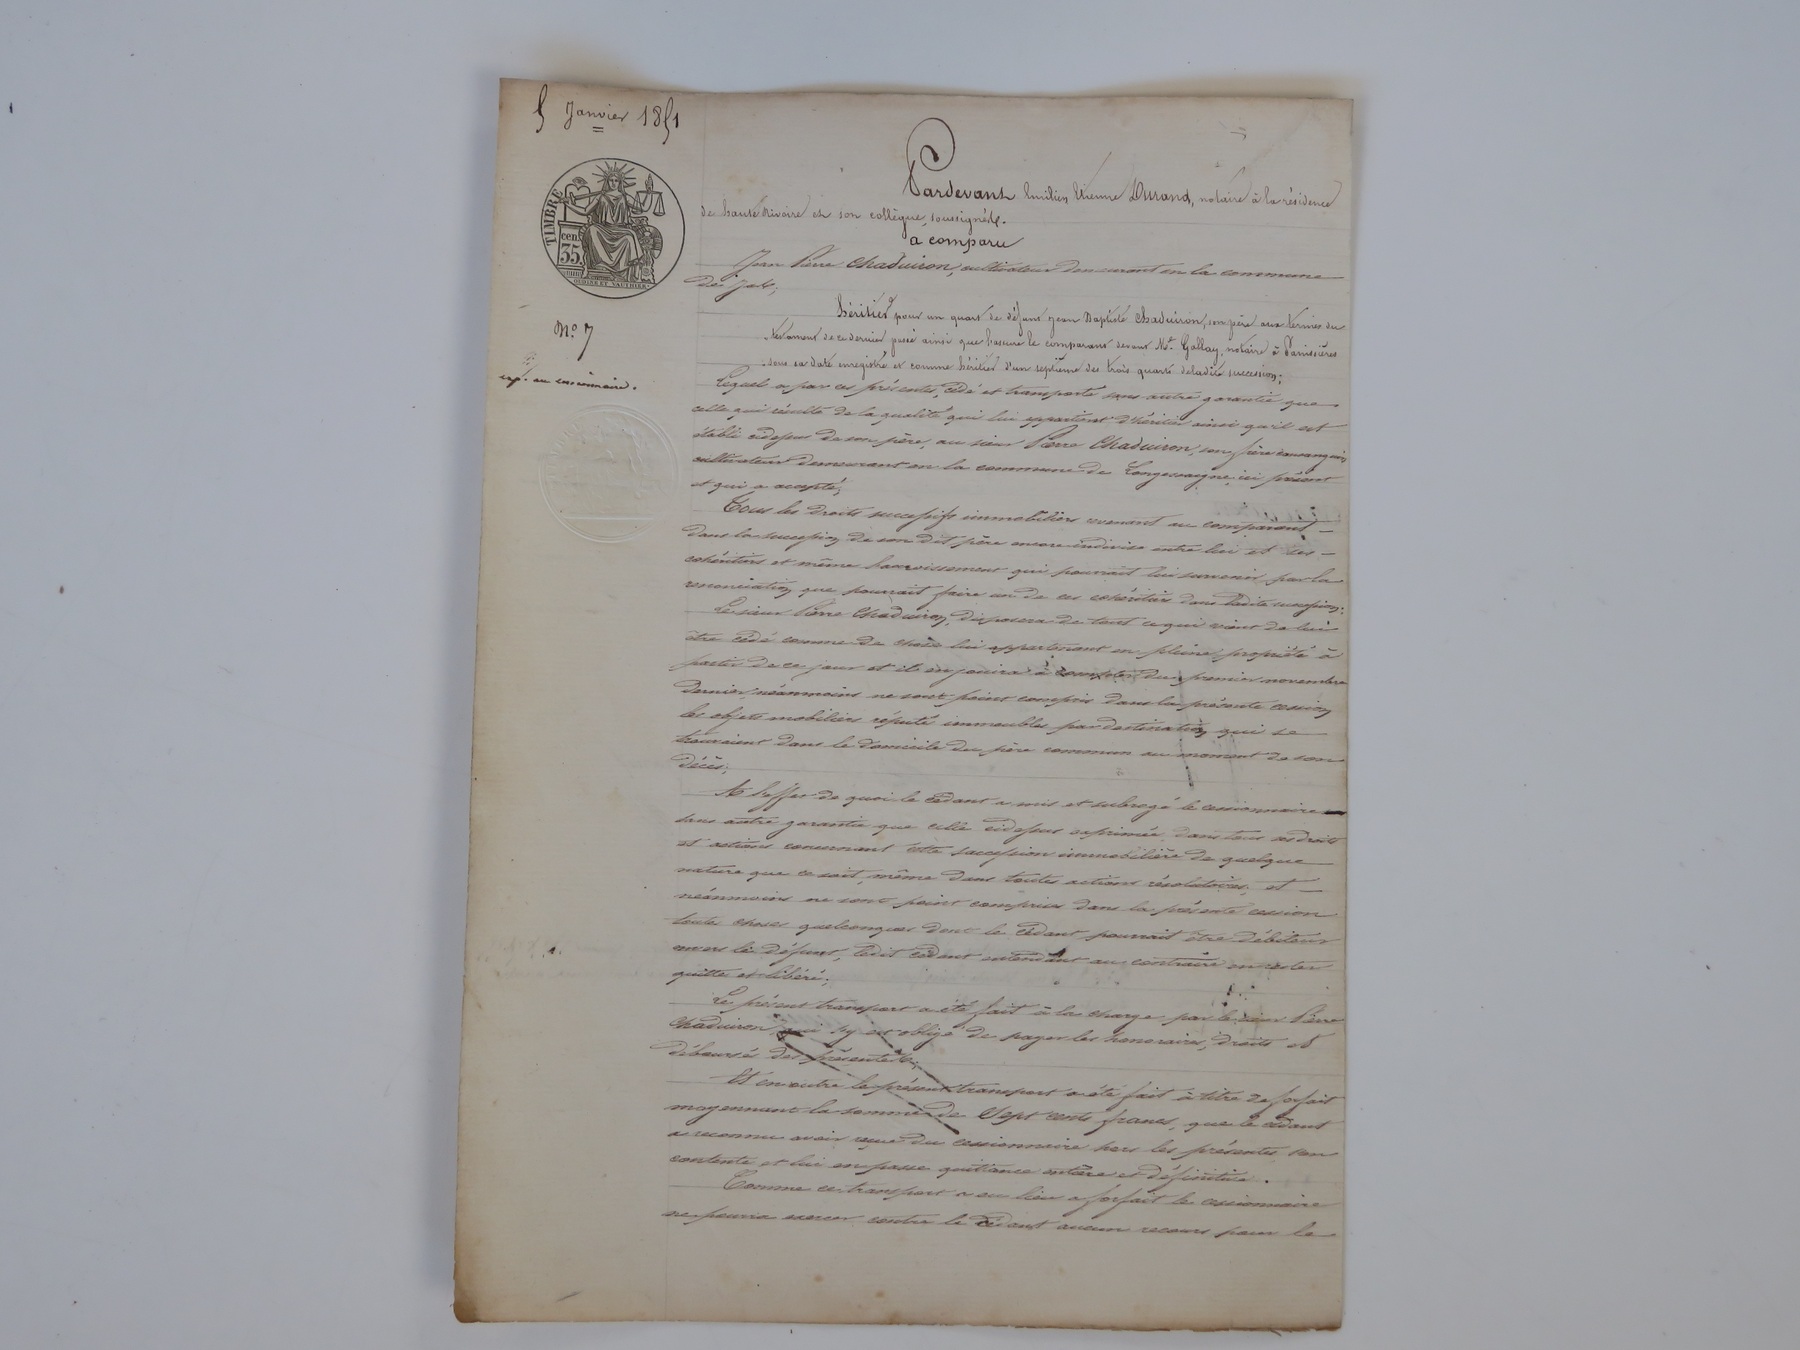 5 Janvier 1851
TIMBRE
cen.
35.
OUDINÉ ET VAUTHIER
No. 7
exp. au cessionnaire.
Pardevant Emilien Etienne Durand, notaire à la résidence
de haute Rivoire et son collègue, soussignés.
a comparu
Jean Pierre Chaduiron, cultivateur demeurant en la commune
de
héritier pour un quart de défunt Jean Baptiste Chaduiron, son père aux termes du
testament de ce dernier passé ainsi que l'assure le comparant devant Mt. Gallay, notaire à Panissières
sous sa date enregistré et comme héritier d'un septième des trois quarts de ladite succession;
Lequel a par ces présentes, cédé et transporté sans autre garantie que
celle qui résulte de la qualité qui lui appartient d'héritier ainsi qu'il est
établi cidessus de son père, au sieur Pierre Chaduiron, son frère consanguin
cultivateur demeurant en la commune de Longessaigne, ici présent
et qui a accepté;
Tous les droits successifs immobiliers revenant au comparant
dans la succession de son dit père encore indivise entre lui et ses
cohéritiers et même l'accroissement qui pourrait lui survenir par la
renonciation que pourrait faire un de ces cohéritiers dans ladite succession;
Le sieur Pierre Chaduiron, disposera de tout ce qui vient de lui
être cédé comme de chose lui appartenant en pleine propriété à
partir de ce jour et il en jouira à compter du premier novembre
dernier, néanmoins ne sont point compris dans la présente cession
les objets mobiliers réputés immeubles par destination qui se
trouvaient dans le domicile du père commun au moment de son
décès;
A l'effet de quoi le cédant a mis et subrogé le cessionnaire
sans autre garantie que celle cidessus exprimée dans tous ses droits
et actions concernant cette succession immobilière de quelque
nature que ce soit, même dans toutes actions résolutoires, et
néanmoins ne sont point comprises dans la présente cession
toutes choses quelconques dont le cédant pourrait être débiteur
envers le défunt, ledit cédant entendant au contraire en rester
quitte et libéré;
Le présent transport a été fait à la charge par le sieur Pierre
Chaduiron qui s'y est obligé de payer les honoraires, droits et
déboursés des présentes;
Et en outre le présent transport a été fait à titre de forfait
moyennant la somme de Sept cents francs, que le cédant
a reconnu avoir reçue du cessionnaire hors les présentes s'en
contente et lui en passe quittance entière et définitive.
Comme ce transport a eu lieu a forfait le cessionnaire
ne pourra exercer contre le cédant aucun recours pour le